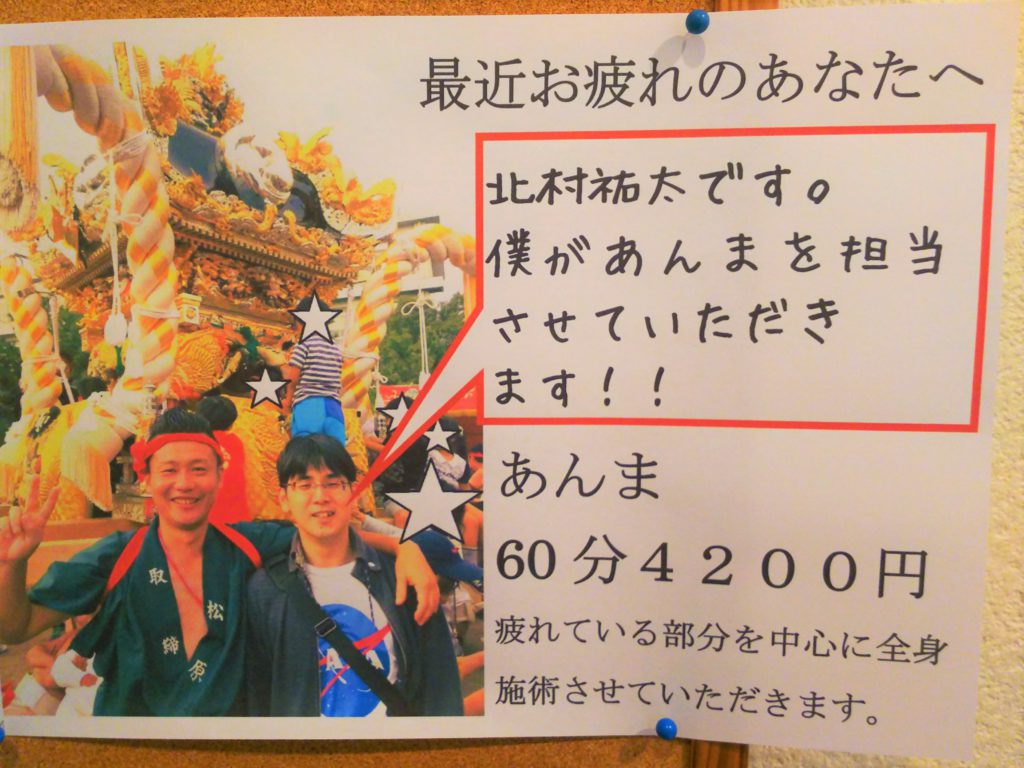 最近お疲れのあなたへ
北村祐太です。
僕があんまを担当
させていただき
ます！！
あんま
60分４２００円
疲れている部分を中心に全身
施術させていただきます。
取締
松原